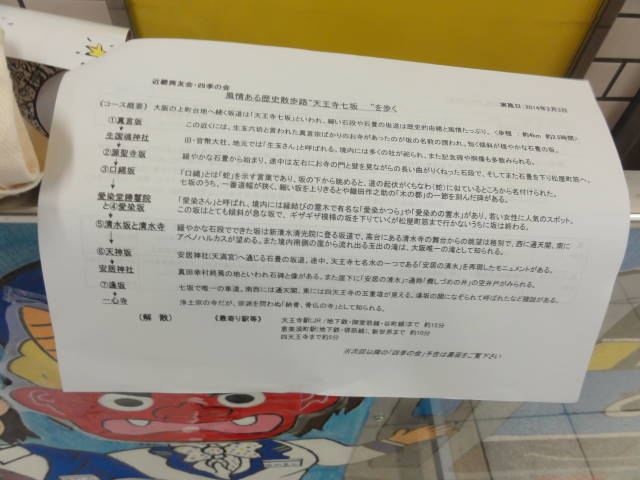 近畿興友会・四季の会
風情ある歴史散歩路“天王寺七坂 ”を歩く
実施日:2014年3月3日
(コース概要) 大阪の上町台地へ続く坂道は「天王寺七坂」といわれ、細い石段や石畳の坂道は歴史的由緒と風情たっぷり。 (歩程 : 約4km 約2.5時間)
①真言坂 この近くには、生玉六坊と言われた真言宗ばかりのお寺があったのが坂の名前の謂われ、短く傾斜が穏やかな石畳の坂。
生国魂神社 旧・官幣大社、地元では「生玉さん」と呼ばれる。境内には多くの社が祀られ、また記念碑や銅像も多数みられる。
②源聖寺坂 緩やかな石畳から始まり、途中は左右にお寺の門と壁を見ながらの長い曲がりくねった石段で、そしてまた石畳を下り松屋町筋へ。
③口縄坂 「口縄」とは「蛇」を示す言葉であり、坂の下から眺めると、道の起伏がくちなわ(蛇)に似ているところから名付けられた。
七坂のうち、一番道幅が狭く、細い坂を上りきるとや織田作之助の「木の都」の一節を刻んだ碑がある。
愛染堂勝鬘院 「愛染さん」と呼ばれ、境内には縁結びの霊木で有名な「愛染かつら」や「愛染めの霊水」があり、若い女性に人気のスポット。
と④愛染坂 この坂はとても傾斜が急な坂で、ギザギザ模様の坂を下りていくが松屋町筋まで行かないうちに坂は終わる。
⑤清水坂と清水寺 緩やかな石段でできた坂は新清水清光院に登る坂道で、高台にある清水寺の舞台からの眺望は格別で、西に通天閣、南に
アベノハルカスが望める。また境内南側の崖から流れ出る玉出の滝は、大阪唯一の滝として知られる。
⑥天神坂 安居神社(天満宮)へ通じる石畳の坂道。途中、天王寺七名水の一つである「安居の清水」を再現したモニュメントがある。
安居神社 真田幸村終焉の地といわれ石碑と像がある。また崖下に「安居の清水」通称「癇しづめの井」の空井戸がみられる。
⑦逢坂 七坂で唯一の車道。南西には通天閣、東には四天王寺の五重塔が見える。逢坂の関になぞられて呼ばれたなど諸説がある。
一心寺 浄土宗の寺だが、宗派を問わぬ「納骨、骨仏の寺」として知られる。
(解 散) (最寄り駅等) 天王寺駅(JR/地下鉄・御堂筋線・谷町線)まで 約15分
恵美須町駅(地下鉄・堺筋線)、新世界まで 約10分
四天王寺まで約5分
※次回以降の「四季の会」予告は裏面をご覧下さい